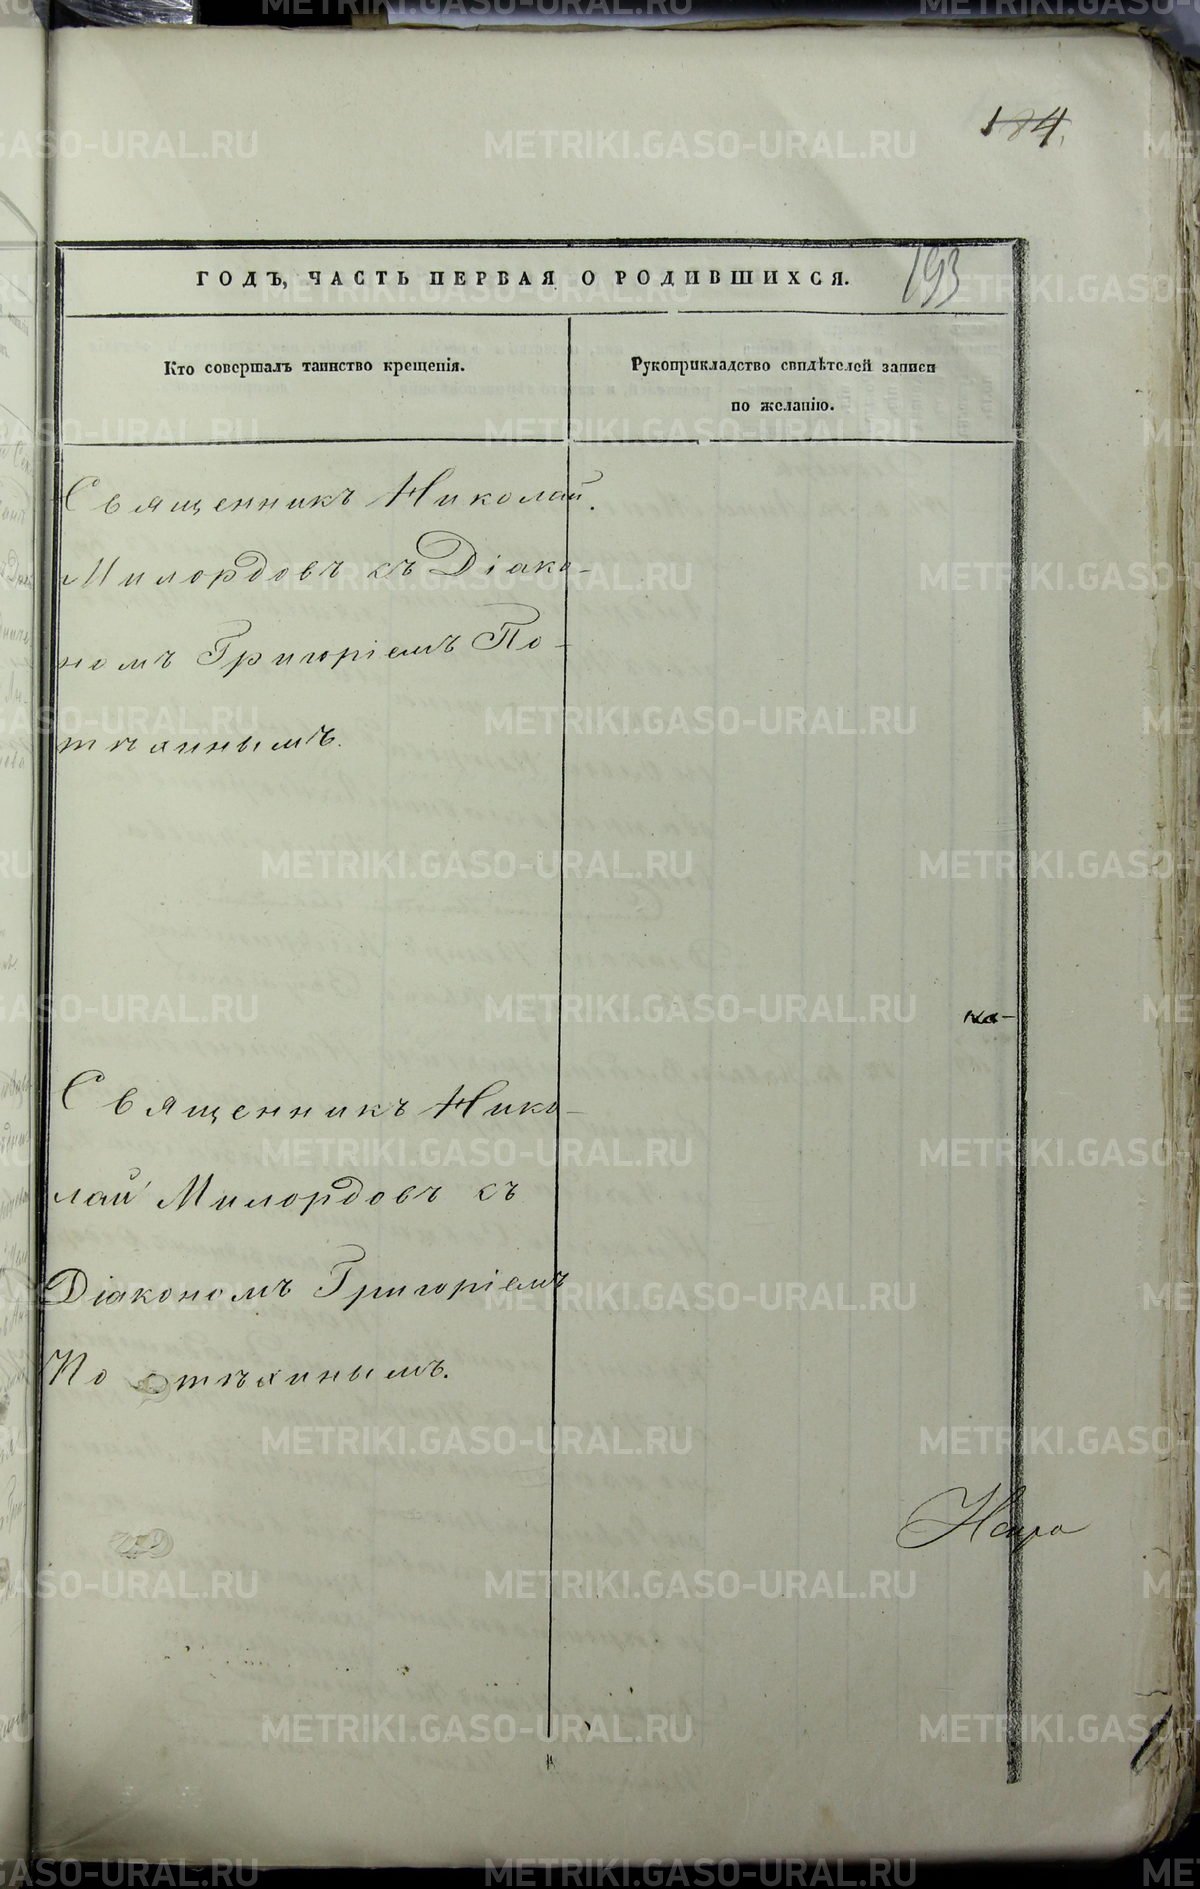 184.
193
ГОДЪ, ЧАСТЬ ПЕРВАЯ О РОДИВШИХСЯ.
Кто совершалъ таинство крещенія.
Рукоприкладство свидѣтелей записи
по желанію.
Священникъ Николай
Милордовъ съ Діако-
номъ Григоріемъ По-
тѣхинымъ.
ка-
Священникъ Нико-
лай Милордовъ съ
Діакономъ Григоріемъ
По тѣхинымъ.
METRIKI.GASO-URAL.RU